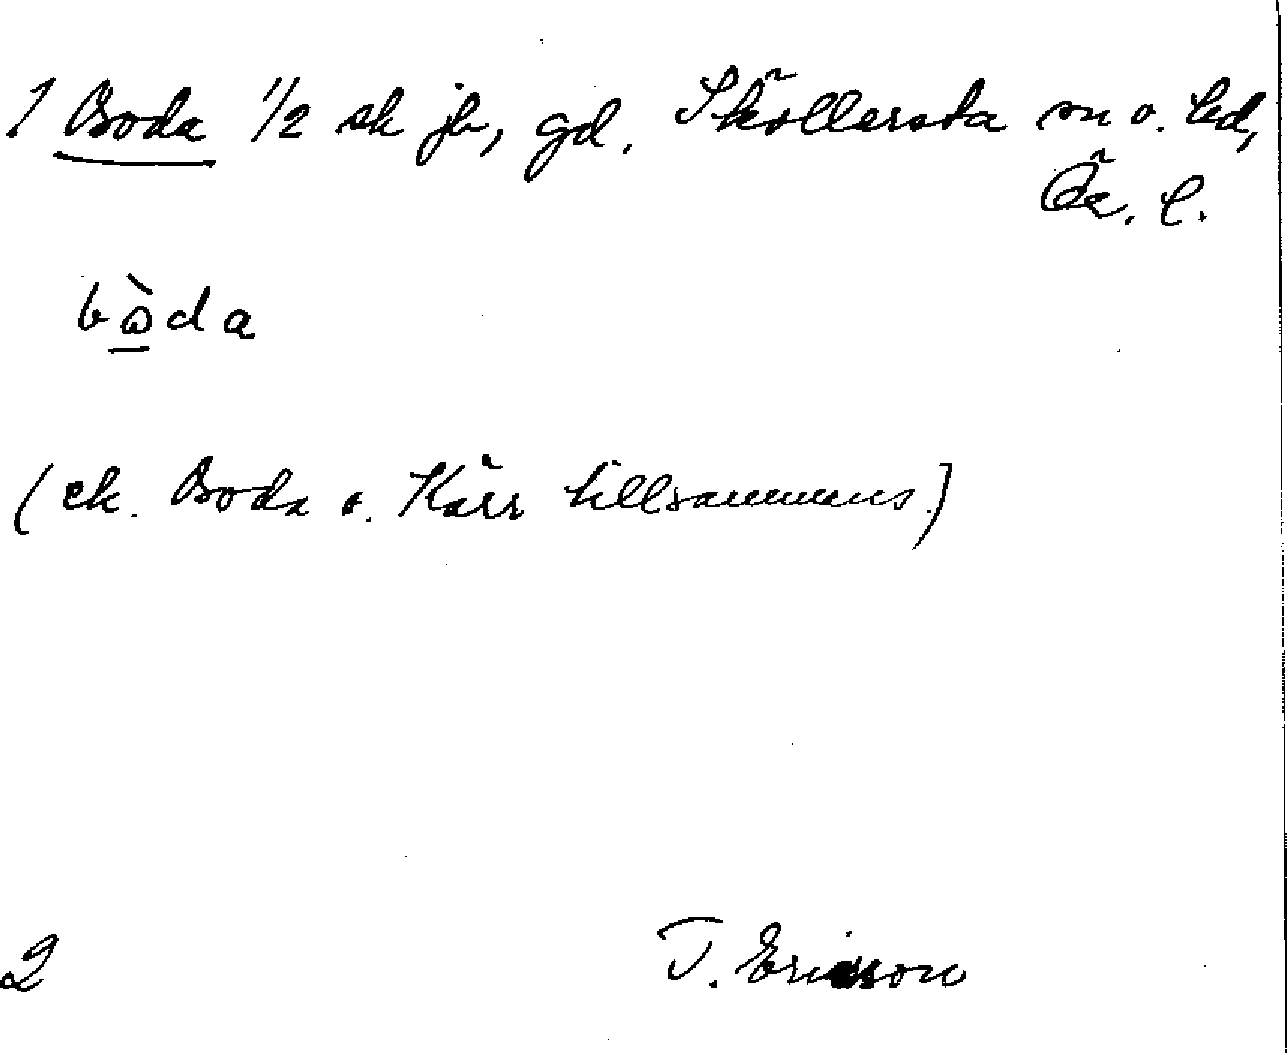 1 Boda 1/2 sk jb, gd. Sköllersta sn o. hd,
Ör. l.
bὼ̲da
(ek. Boda o. Kärr tillsammans.)
2 T. Ericsson